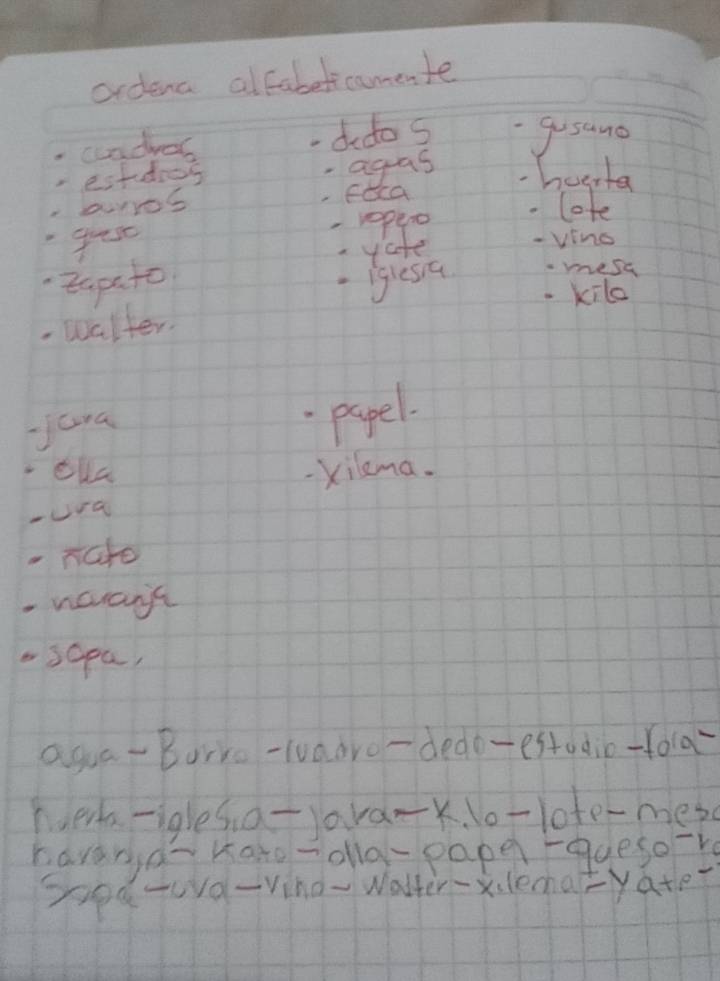 ordena alfabeticamente
- cuadros
- estudios
- burros
- queso
- zapato.
- walter.
- dedos
- aguas
- foca
- ropero
- yate
- iglesia
- gusano
- huerta
- lote
- vino
- mesa
- kilo
- jara
- olla
- uva
- naranja
- sopa,
- papel.
- xilema.
agua - Burro - cuadro - dedo - estudio - foca -
huerta - iglesia - jara - Kilo - lote - mesa
naranja - olla - papel - queso -
Sopa - uva - vino - Walter - xilema - Yate -